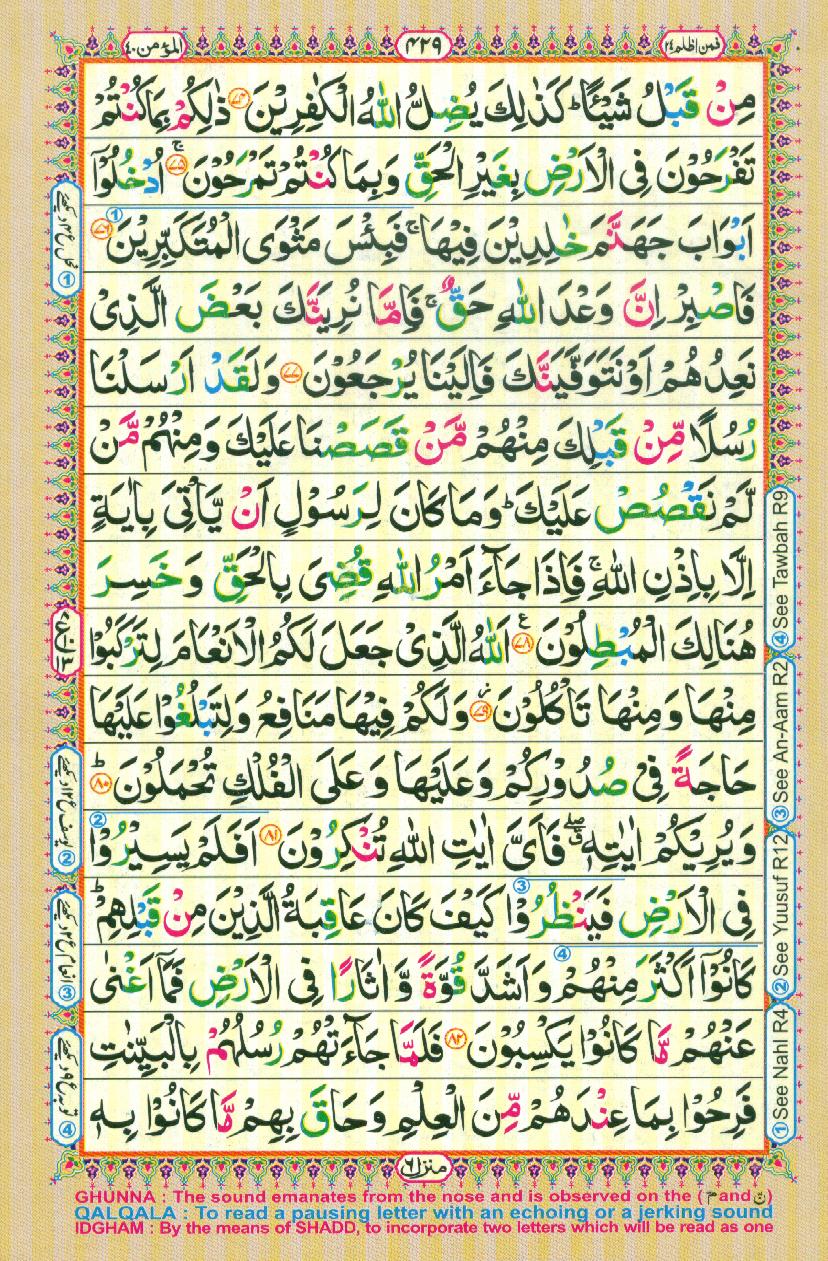 فمن اظلم ٢٤
٤٢٩
المؤمن ٤٠
مِنْ قَبْلُ شَيْـًٔا ؕ كَذٰلِكَ يُضِلُّ اللّٰهُ الْكٰفِرِيْنَ ﴿۷۴﴾ ذٰلِكُمْ بِمَا كُنْتُمْ
تَفْرَحُوْنَ فِى الْاَرْضِ بِغَيْرِ الْحَقِّ وَبِمَا كُنْتُمْ تَمْرَحُوْنَ ۚ﴿۷۵﴾ اُدْخُلُوْۤا
اَبْوَابَ جَهَنَّمَ خٰلِدِيْنَ فِيْهَا ۚ فَبِئْسَ مَثْوَى الْمُتَكَبِّرِيْنَ ﴿۷۶﴾
فَاصْبِرْ اِنَّ وَعْدَ اللّٰهِ حَقٌّ ۚ فَاِمَّا نُرِيَنَّكَ بَعْضَ الَّذِىْ
نَعِدُهُمْ اَوْ نَتَوَفَّيَنَّكَ فَاِلَيْنَا يُرْجَعُوْنَ ﴿۷۷﴾ وَلَقَدْ اَرْسَلْنَا
رُسُلًا مِّنْ قَبْلِكَ مِنْهُمْ مَّنْ قَصَصْنَا عَلَيْكَ وَمِنْهُمْ مَّنْ
لَّمْ نَقْصُصْ عَلَيْكَ ؕ وَمَا كَانَ لِرَسُوْلٍ اَنْ يَّاْتِىَ بِاٰيَةٍ
اِلَّا بِاِذْنِ اللّٰهِ ۚ فَاِذَا جَآءَ اَمْرُ اللّٰهِ قُضِىَ بِالْحَقِّ وَخَسِرَ
هُنَالِكَ الْمُبْطِلُوْنَ ﴿۷۸﴾ۧ اَللّٰهُ الَّذِىْ جَعَلَ لَكُمُ الْاَنْعَامَ لِتَرْكَبُوْا
مِنْهَا وَمِنْهَا تَاْكُلُوْنَ ﴿۷۹﴾ وَلَكُمْ فِيْهَا مَنَافِعُ وَلِتَبْلُغُوْا عَلَيْهَا
حَاجَةً فِىْ صُدُوْرِكُمْ وَعَلَيْهَا وَعَلَى الْفُلْكِ تُحْمَلُوْنَ ؕ﴿۸۰﴾
وَيُرِيْكُمْ اٰيٰتِهٖ ۖۗ فَاَىَّ اٰيٰتِ اللّٰهِ تُنْكِرُوْنَ ﴿۸۱﴾ اَفَلَمْ يَسِيْرُوْا
فِى الْاَرْضِ فَيَنْظُرُوْا كَيْفَ كَانَ عَاقِبَةُ الَّذِيْنَ مِنْ قَبْلِهِمْ ؕ
كَانُوْۤا اَكْثَرَ مِنْهُمْ وَاَشَدَّ قُوَّةً وَّاٰثَارًا فِى الْاَرْضِ فَمَاۤ اَغْنٰى
عَنْهُمْ مَّا كَانُوْا يَكْسِبُوْنَ ﴿۸۲﴾ فَلَمَّا جَآءَتْهُمْ رُسُلُهُمْ بِالْبَيِّنٰتِ
فَرِحُوْا بِمَا عِنْدَهُمْ مِّنَ الْعِلْمِ وَحَاقَ بِهِمْ مَّا كَانُوْا بِهٖ
منزل ٦
① See Nahl R4
② See Yuusuf R12
③ See An-Aam R2
④ See Tawbah R9
① نحل ع ۴ دیکھئے
② یوسف ع ۱۲ دیکھئے
③ انعام ع ۲ دیکھئے
④ توبہ ع ۹ دیکھئے
GHUNNA : The sound emanates from the nose and is observed on the (مّ and نّ)
QALQALA : To read a pausing letter with an echoing or a jerking sound
IDGHAM : By the means of SHADD, to incorporate two letters which will be read as one